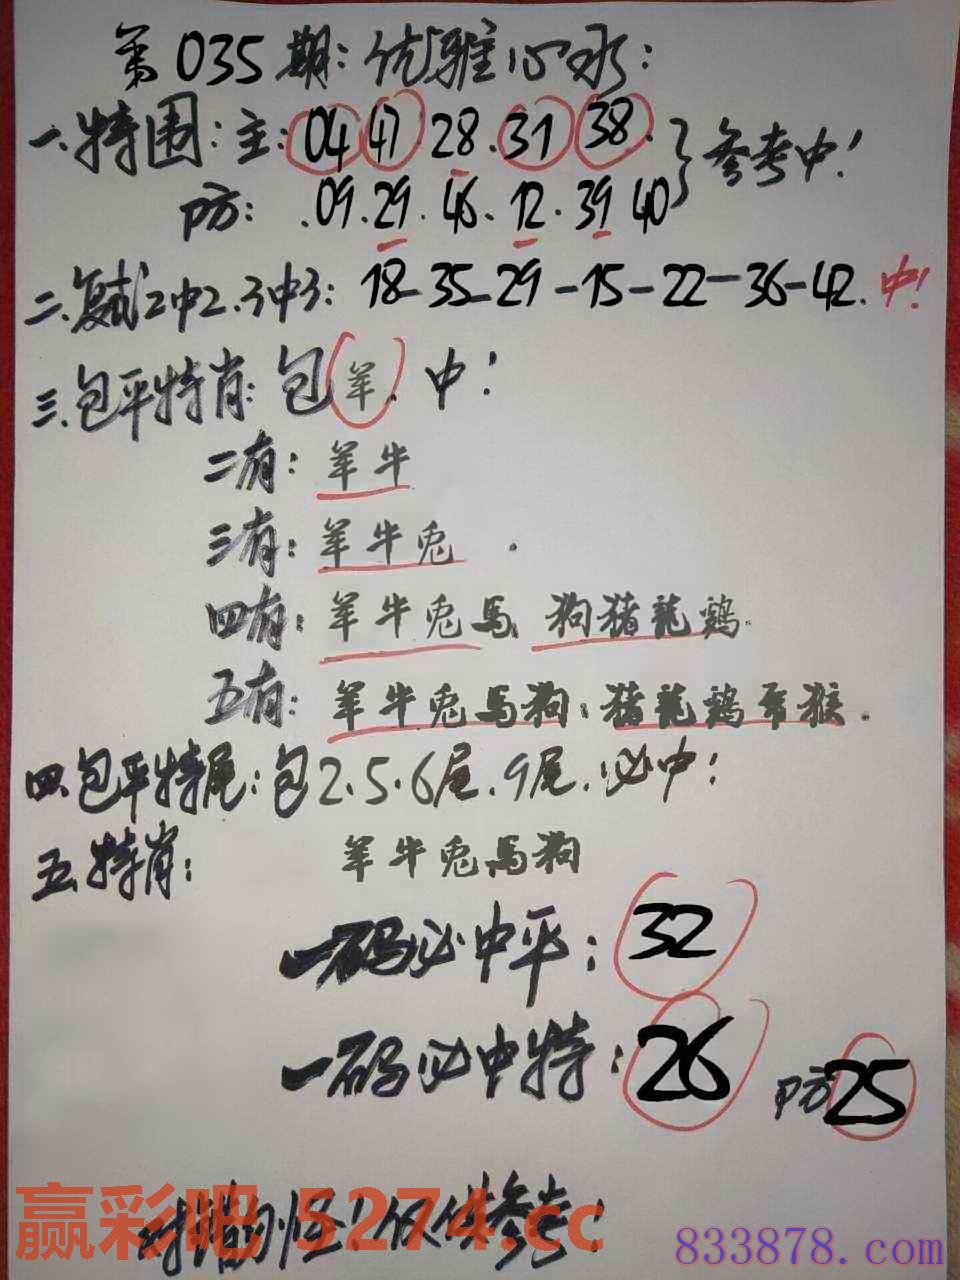 第035期:优雅心水:
一.特围:主:04 47 28.31 38.}参考中!
防:.09.29.46.12.39 40
二.复试2中2.3中3:18-35-29-15-22-36-42.中!
三.包平特肖:包羊.中!
二有:羊牛
三有:羊牛兎.
四有:羊牛兎馬 狗猪龍鷄.
五有:羊牛兎馬狗:猪龍鷄 猴.
四.包平特尾:包2.5.6尾.9尾.必中!
五.特肖: 羊牛兎馬狗
一码必中平:32
一码必中特:26 防25
对错勿怪!仅供参考!
赢彩吧 5274.cc
833878.com